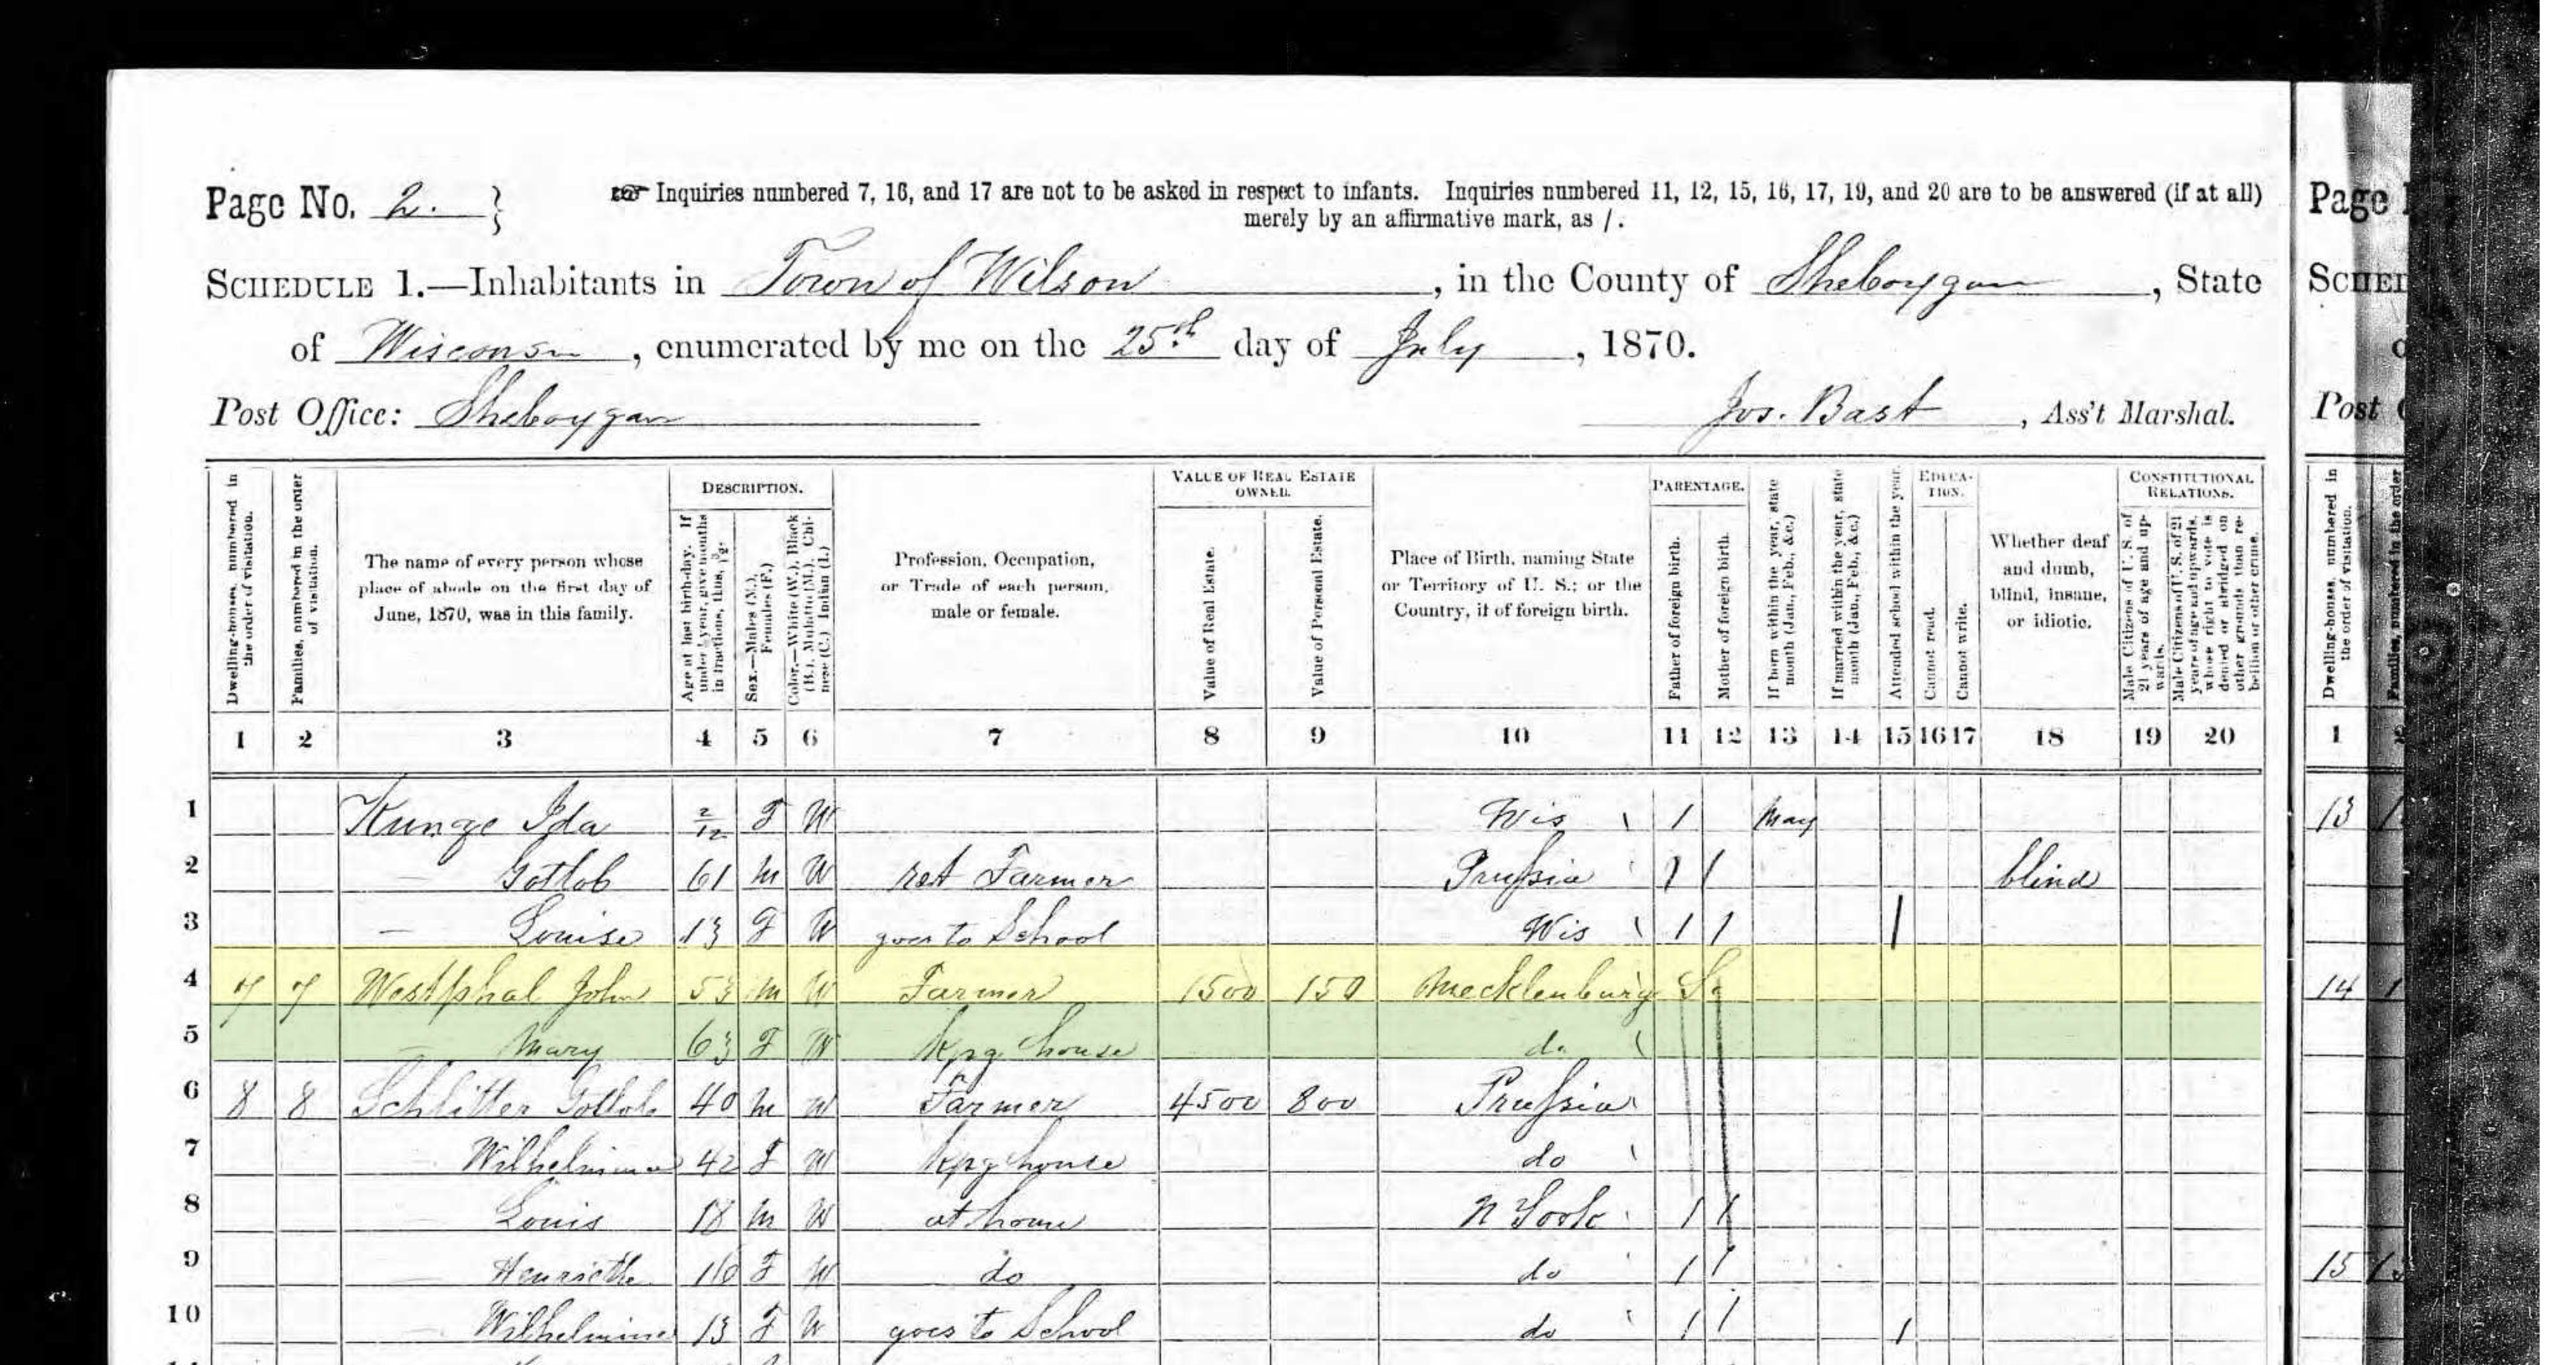 Page No. 2. }
☞ Inquiries numbered 7, 16, and 17 are not to be asked in respect to infants. Inquiries numbered 11, 12, 15, 16, 17, 19, and 20 are to be answered (if at all)
merely by an affirmative mark, as /.
SCHEDULE 1.—Inhabitants in Town of Wilson, in the County of Sheboygan, State
of Wisconsin, enumerated by me on the 25th day of July, 1870.
Post Office: Sheboygan
Jos. Bast, Ass't Marshal.
Dwelling-houses, numbered in the order of visitation.
Families, numbered in the order of visitation.
The name of every person whose
place of abode on the first day of
June, 1870, was in this family.
DESCRIPTION.
Age at last birth-day. If under 1 year, give months in fractions, thus, 3/12.
Sex.—Males (M.), Females (F.)
Color.—White (W.), Black (B.), Mulatto (M.), Chinese (C.), Indian (I.)
Profession, Occupation,
or Trade of each person,
male or female.
VALUE OF REAL ESTATE
OWNED.
Value of Real Estate.
Value of Personal Estate.
Place of Birth, naming State
or Territory of U. S.; or the
Country, if of foreign birth.
PARENTAGE.
Father of foreign birth.
Mother of foreign birth.
If born within the year, state month (Jan., Feb., &c.)
If married within the year, state month (Jan., Feb., &c.)
Attended school within the year.
EDUCA-
TION.
Cannot read.
Cannot write.
Whether deaf
and dumb,
blind, insane,
or idiotic.
CONSTITUTIONAL
RELATIONS.
Male Citizens of U. S. of 21 years of age and upwards.
Male Citizens of U. S. of 21 years of age and upwards, whose right to vote is denied or abridged on other grounds than rebellion or other crime.
1 2 3 4 5 6 7 8 9 10 11 12 13 14 15 16 17 18 19 20
1 Kunze Ida 2/12 F W Wis / May
2 — Gotlob 61 M W ret Farmer Prussia / / blind
3 — Louise 13 F W goes to School Wis / / /
4 7 7 Westphal John 53 M W Farmer 1500 150 Mecklenburg S
5 — Mary 63 F W Kpg house do
6 8 8 Schlitter Gotlob 40 M W Farmer 4500 800 Prussia
7 — Wilhelmina 42 F W Kpg house do
8 — Louis 18 M W at home N York / /
9 — Henriette 16 F W do do / /
10 — Wilhelmine 13 F W goes to School do / / /
Page
SCHED
Post
Dwelling-houses, numbered in the order of visitation.
Families, numbered in the order
1
13
14
15